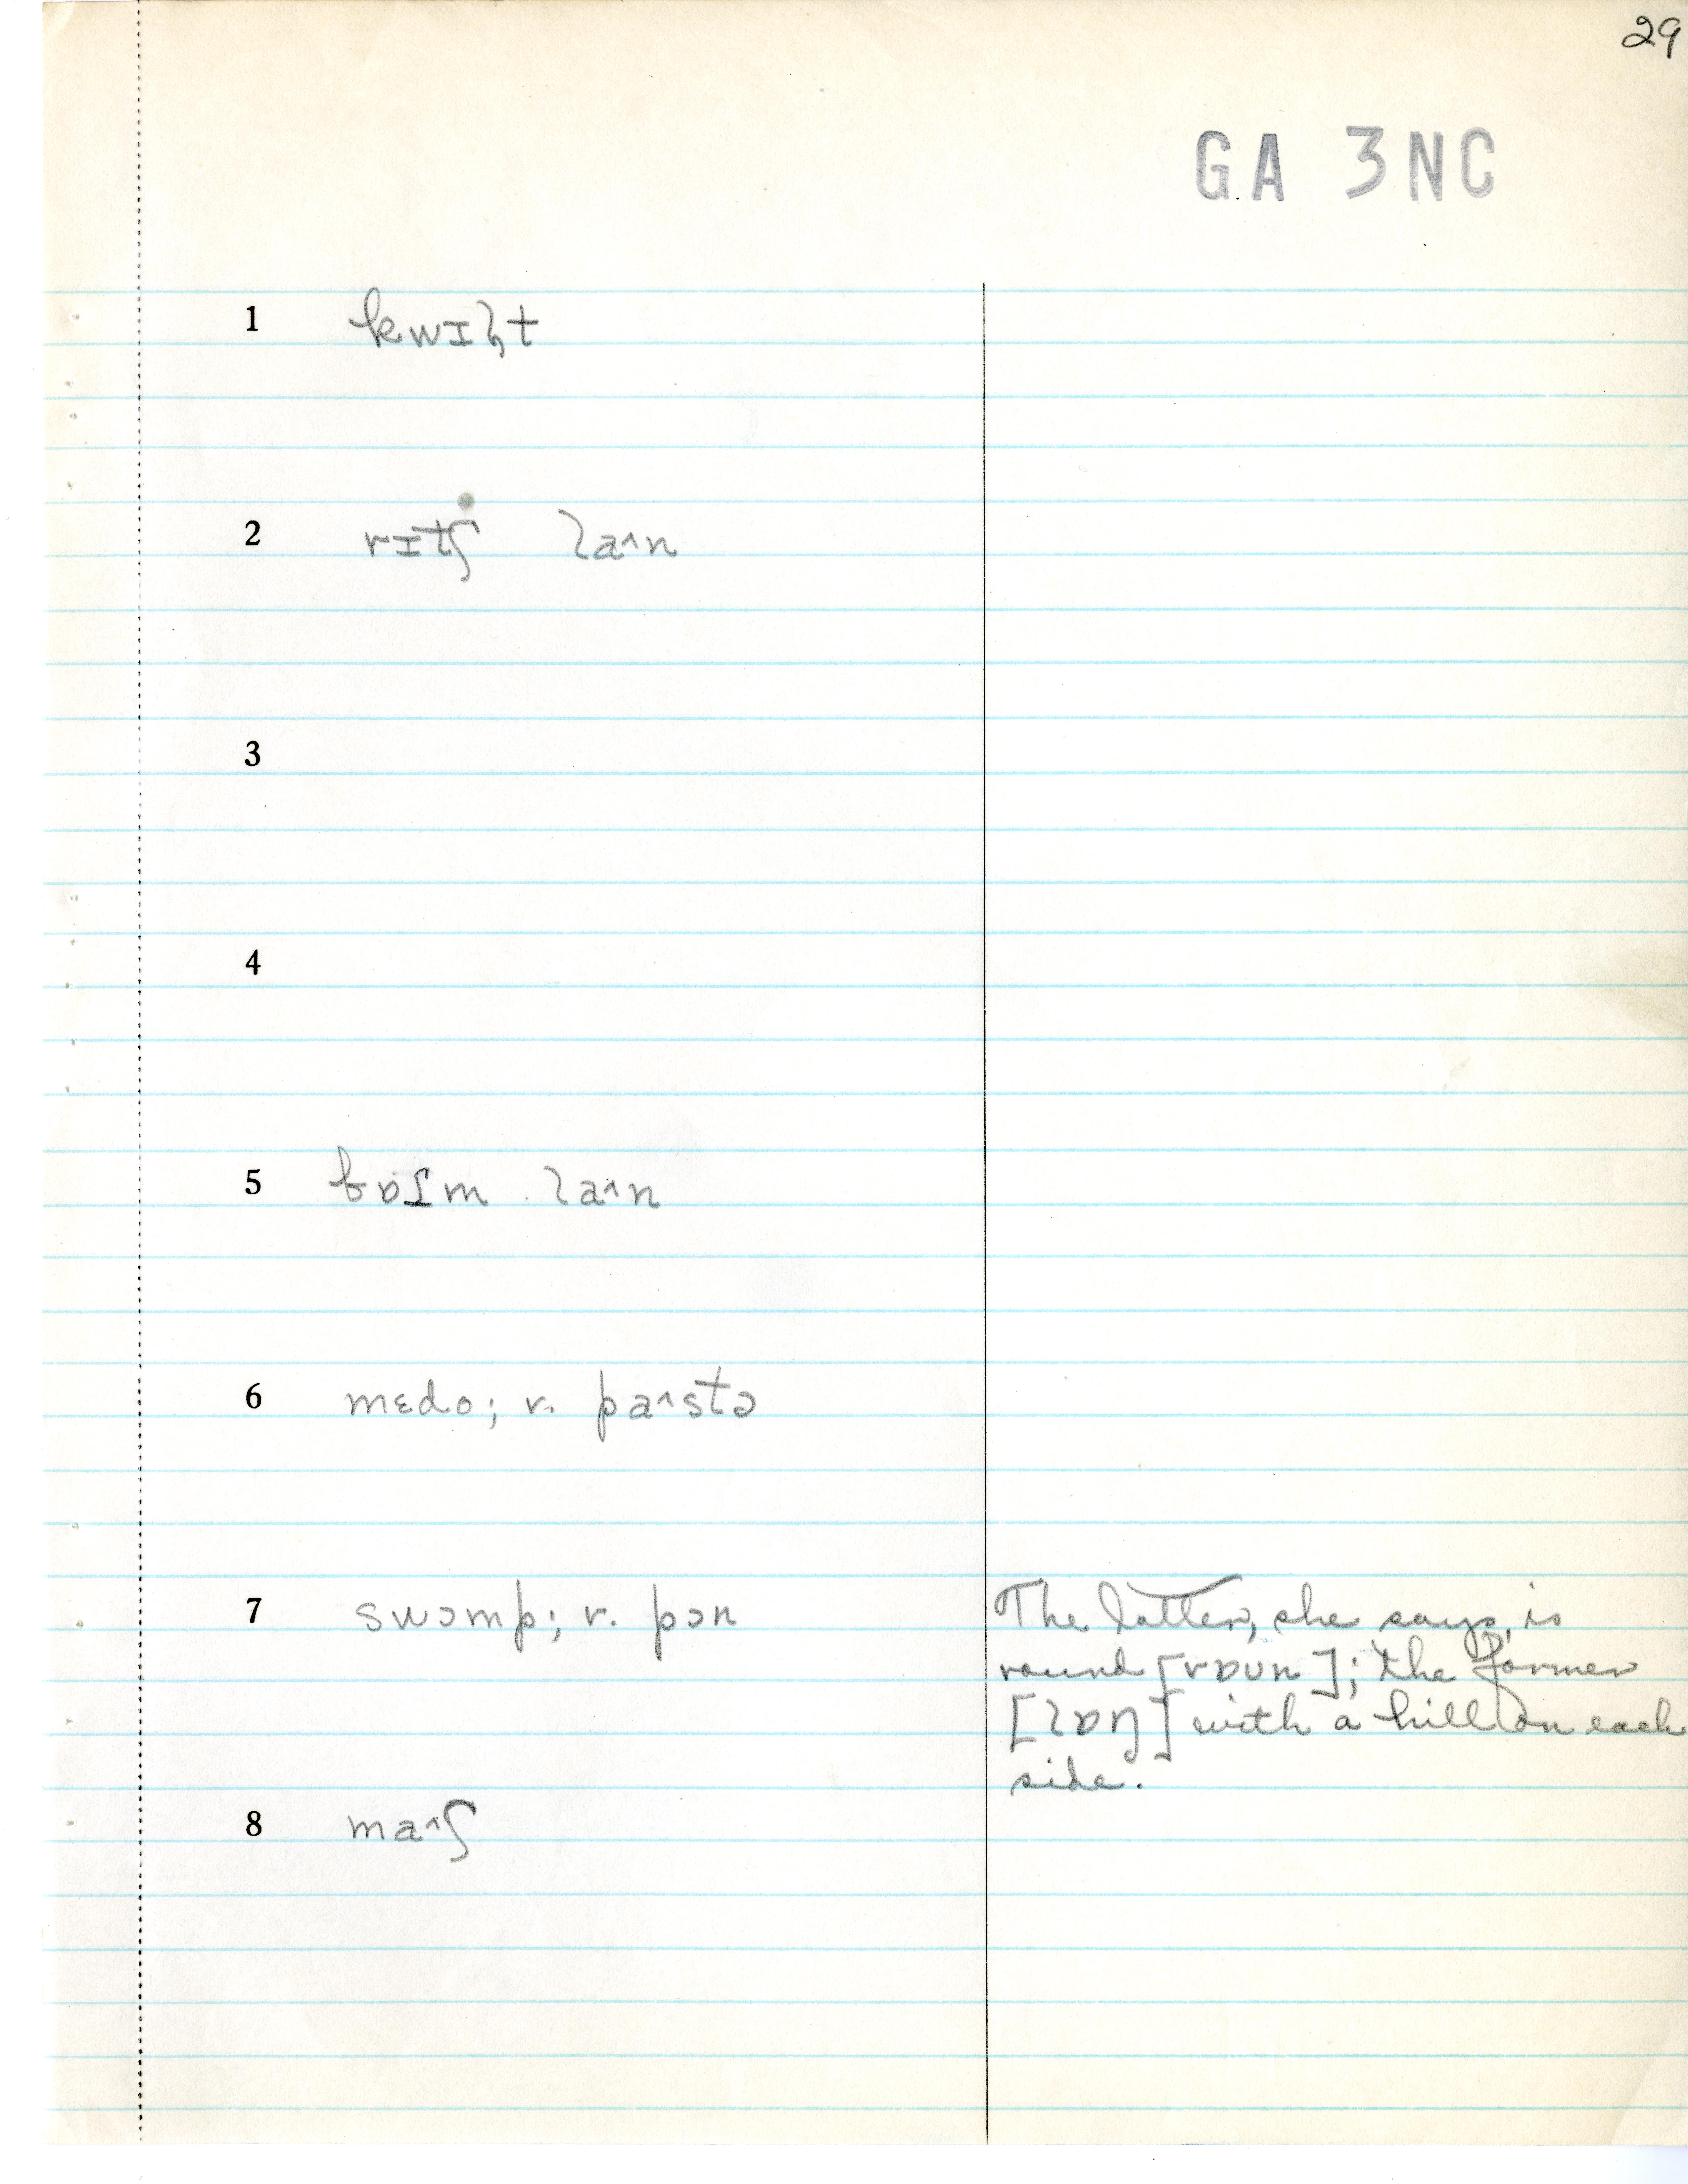 29
GA 3NC
1 kwɪl̩t
2 rɪtʃ la^n
3
4
5 la^n
6 mɛdo; r. pa^stə
7 swɔmp; r. pɔn
The latter, she says, is
round [rɒun]; the former
[lɒŋ] with a hill on each
side.
8 ma^ʃ